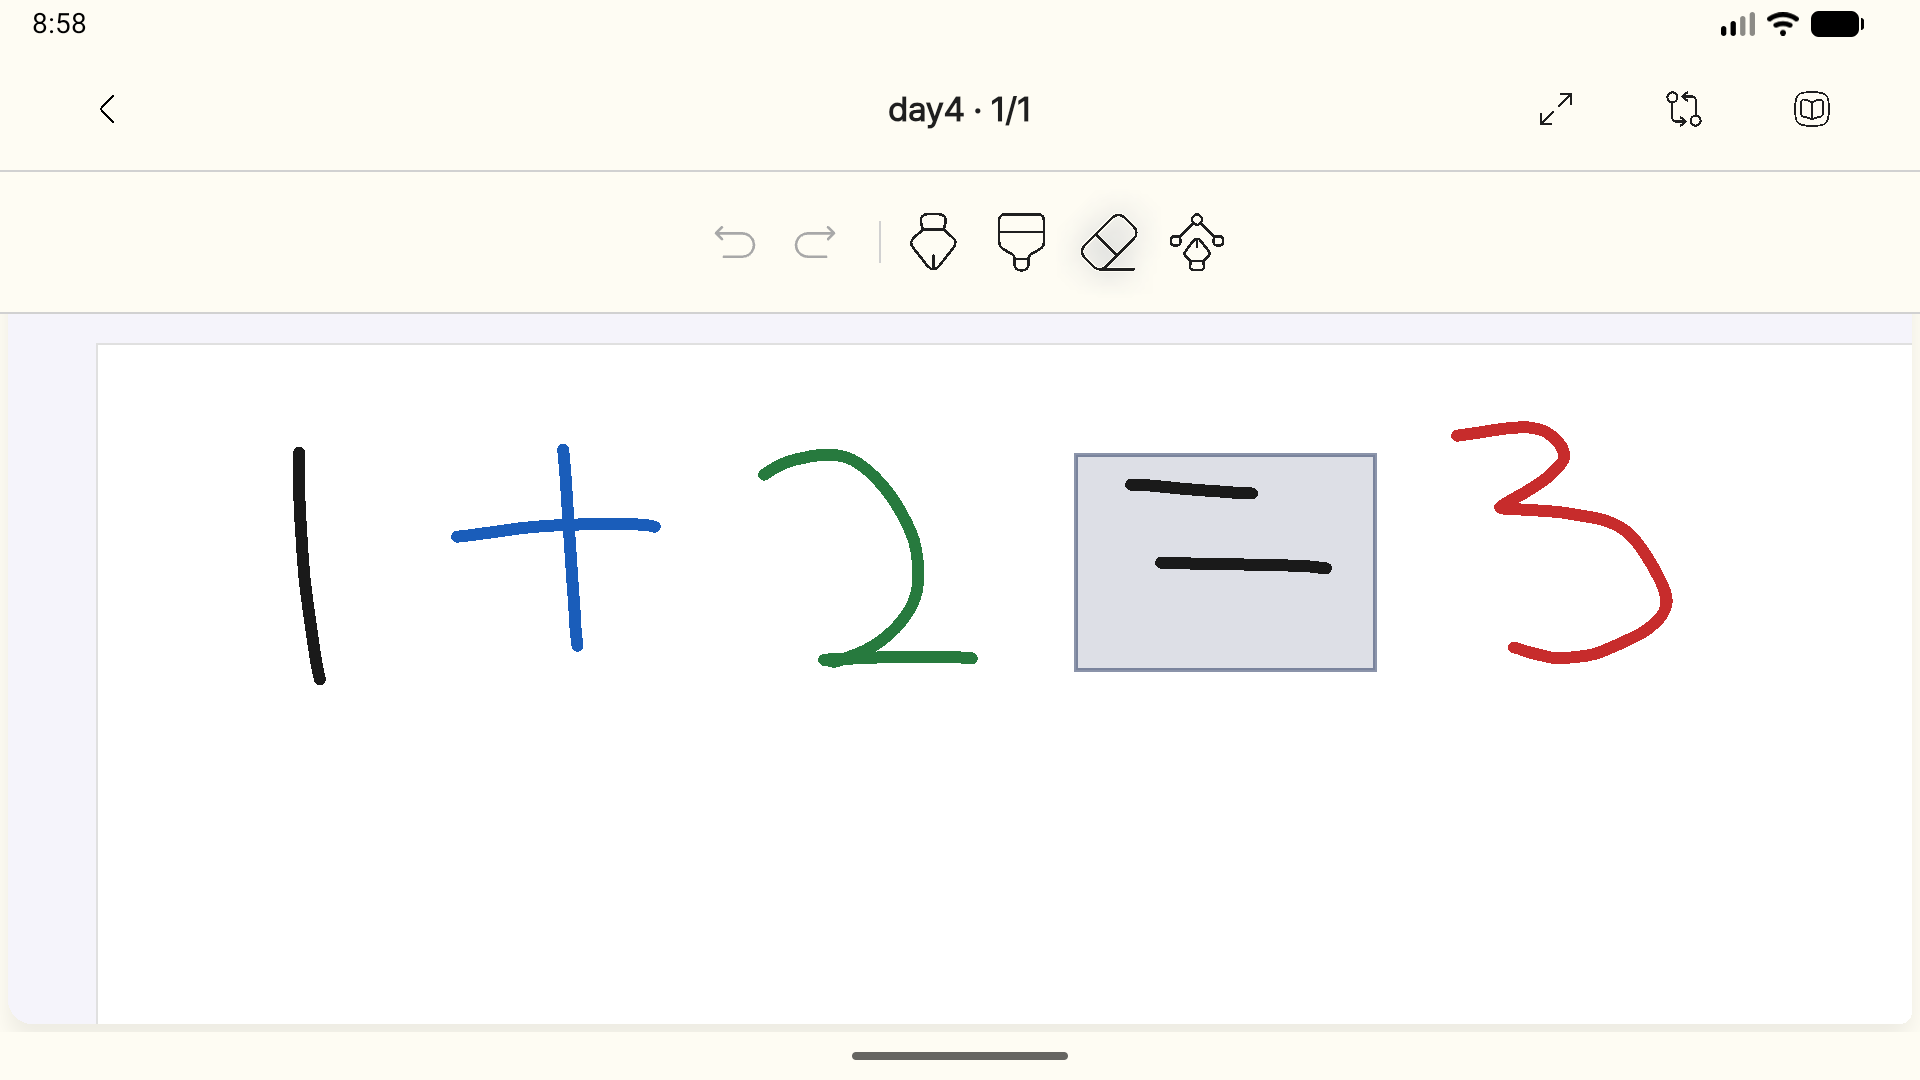 8:58
day4 · 1/1
1 + 2 = 3